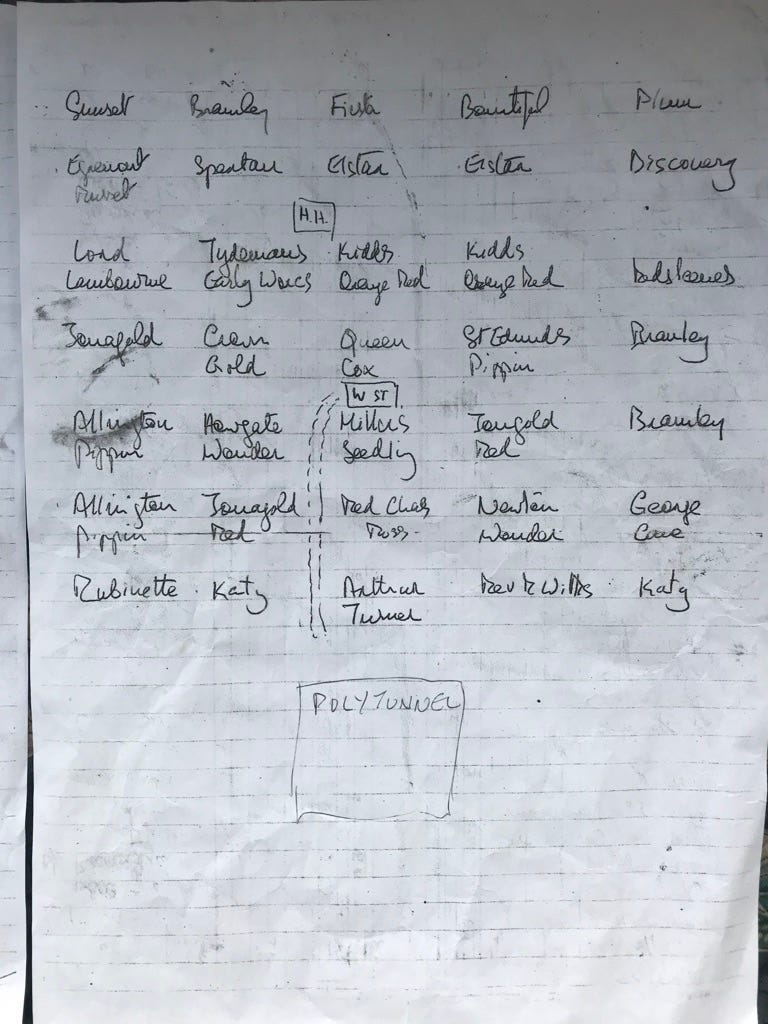 Sunset Bramley Fiesta Bountiful Plum
Egremont Spartan Elstar Elstar Discovery
Russet
H.H.
Lord Tydemans Kidds Kidds
Lambourne Early Worcs Orange Red Orange Red
Jonagold Crown Queen St Edmunds Bramley
Gold Cox Pippin
W ST
Allington Howgate Millers Jongold Bramley
Pippin Wonder Seedling Red
Allington Jonagold Red Chas Newton George
Pippin Red Ross Wonder Cave
Rubinette Katy Arthur Rev R Wilks Katy
Turner
POLYTUNNEL